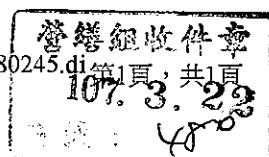 營繕組收件章
80245.di 第1頁，共1頁
107. 3. 22